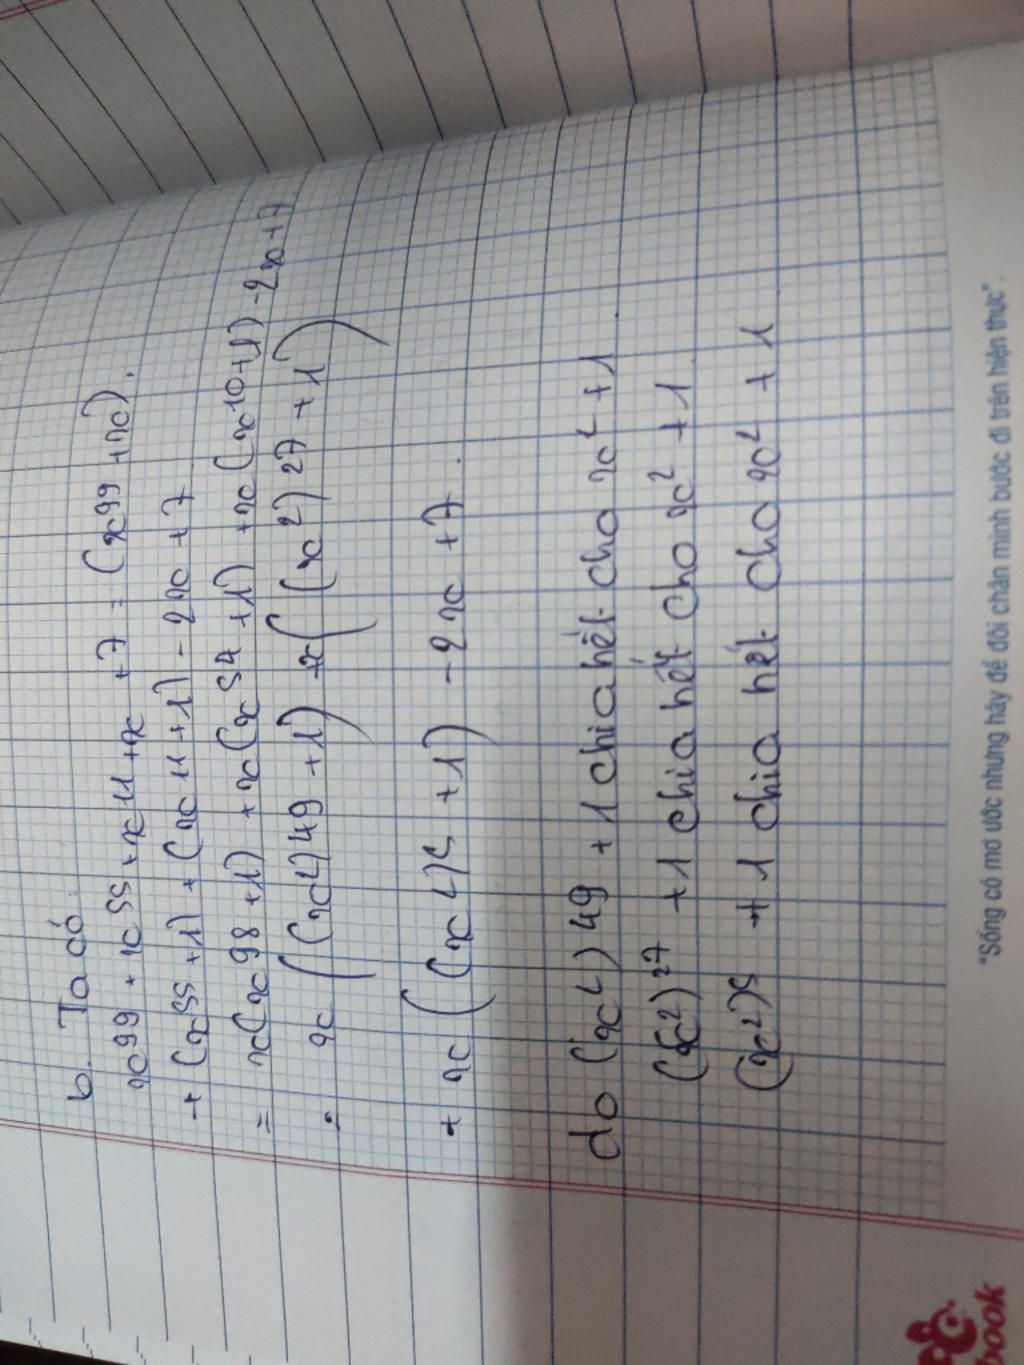 b. Ta có
x99 + x55 + x11 + x + 7 = (x99 + x).
+ (x55 + 1) + (x11 + 1) - 2x + 7
= x(x98 + 1) + x(x54 + 1) + x(x10 + 1) - 2x + 7
= x((x2)49 + 1) + x((x2)27 + 1)
+ x((x2)5 + 1) - 2x + 7.
do (x2)49 + 1 chia hết cho x2 + 1
(x2)27 + 1 chia hết cho x2 + 1
(x2)5 + 1 chia hết cho x2 + 1
"Sống có mơ ước nhưng hãy để đôi chân mình bước đi trên hiện thực".
book